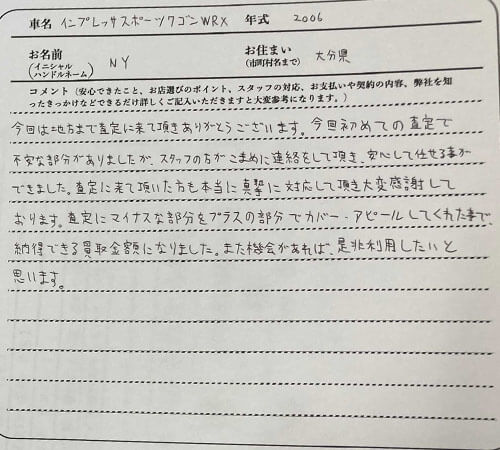 車名 インプレッサスポーツワゴンWRX 年式 2006
お名前 (イニシャル ハンドルネーム) NY お住まい (市町村名まで) 大分県
コメント(安心できたこと、お店選びのポイント、スタッフの対応、お支払いや契約の内容、弊社を知
ったきっかけなどできるだけ詳しくご記入いただきますと大変参考になります。)
今回は地方まで査定に来て頂きありがとうございます。今回初めての査定で
不安な部分がありましたが、スタッフの方がこまめに連絡をして頂き、安心して任せる事が
できました。査定に来て頂いた方も本当に真摯に対応して頂き大変感謝して
おります。査定にマイナスな部分をプラスの部分でカバー・アピールしてくれた事で、
納得できる買取金額になりました。また機会があれば、是非利用したいと
思います。